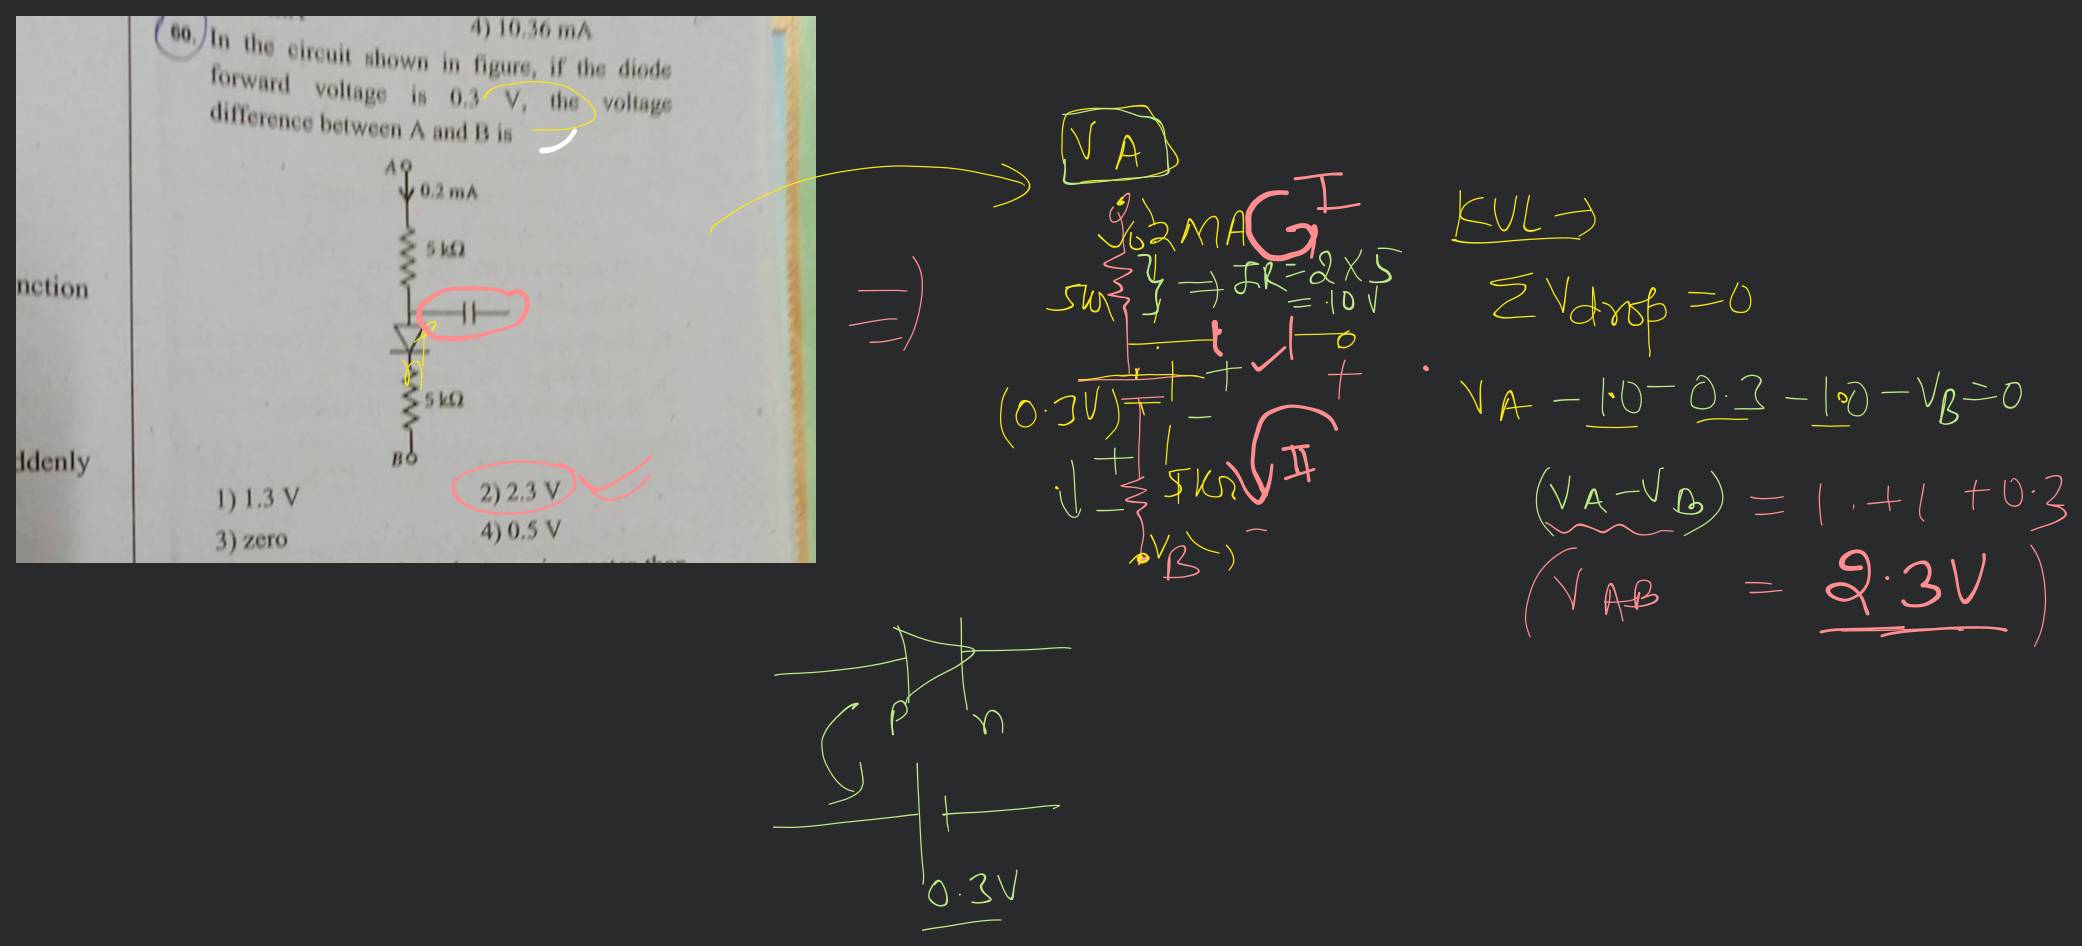 4) 10.36 mA
60. In the circuit shown in figure, if the diode
forward voltage is 0.3 V, the voltage
difference between A and B is
A
0.2 mA
5 kΩ
5 kΩ
B
1) 1.3 V
2) 2.3 V
3) zero
4) 0.5 V
nction
ddenly
n
V A
0.2 MA
I
5kΩ
⇒ IR = 2 × 5
= 10 V
⇒
+
+
(0.3V)
-
+
i
-
5KΩ
II
-
V B
KVL →
Σ Vdrop = 0
VA - 1.0 - 0.3 - 1.0 - VB = 0
(VA - VB) = 1 + 1 + 0.3
(V AB = 2.3V)
P
n
0.3V